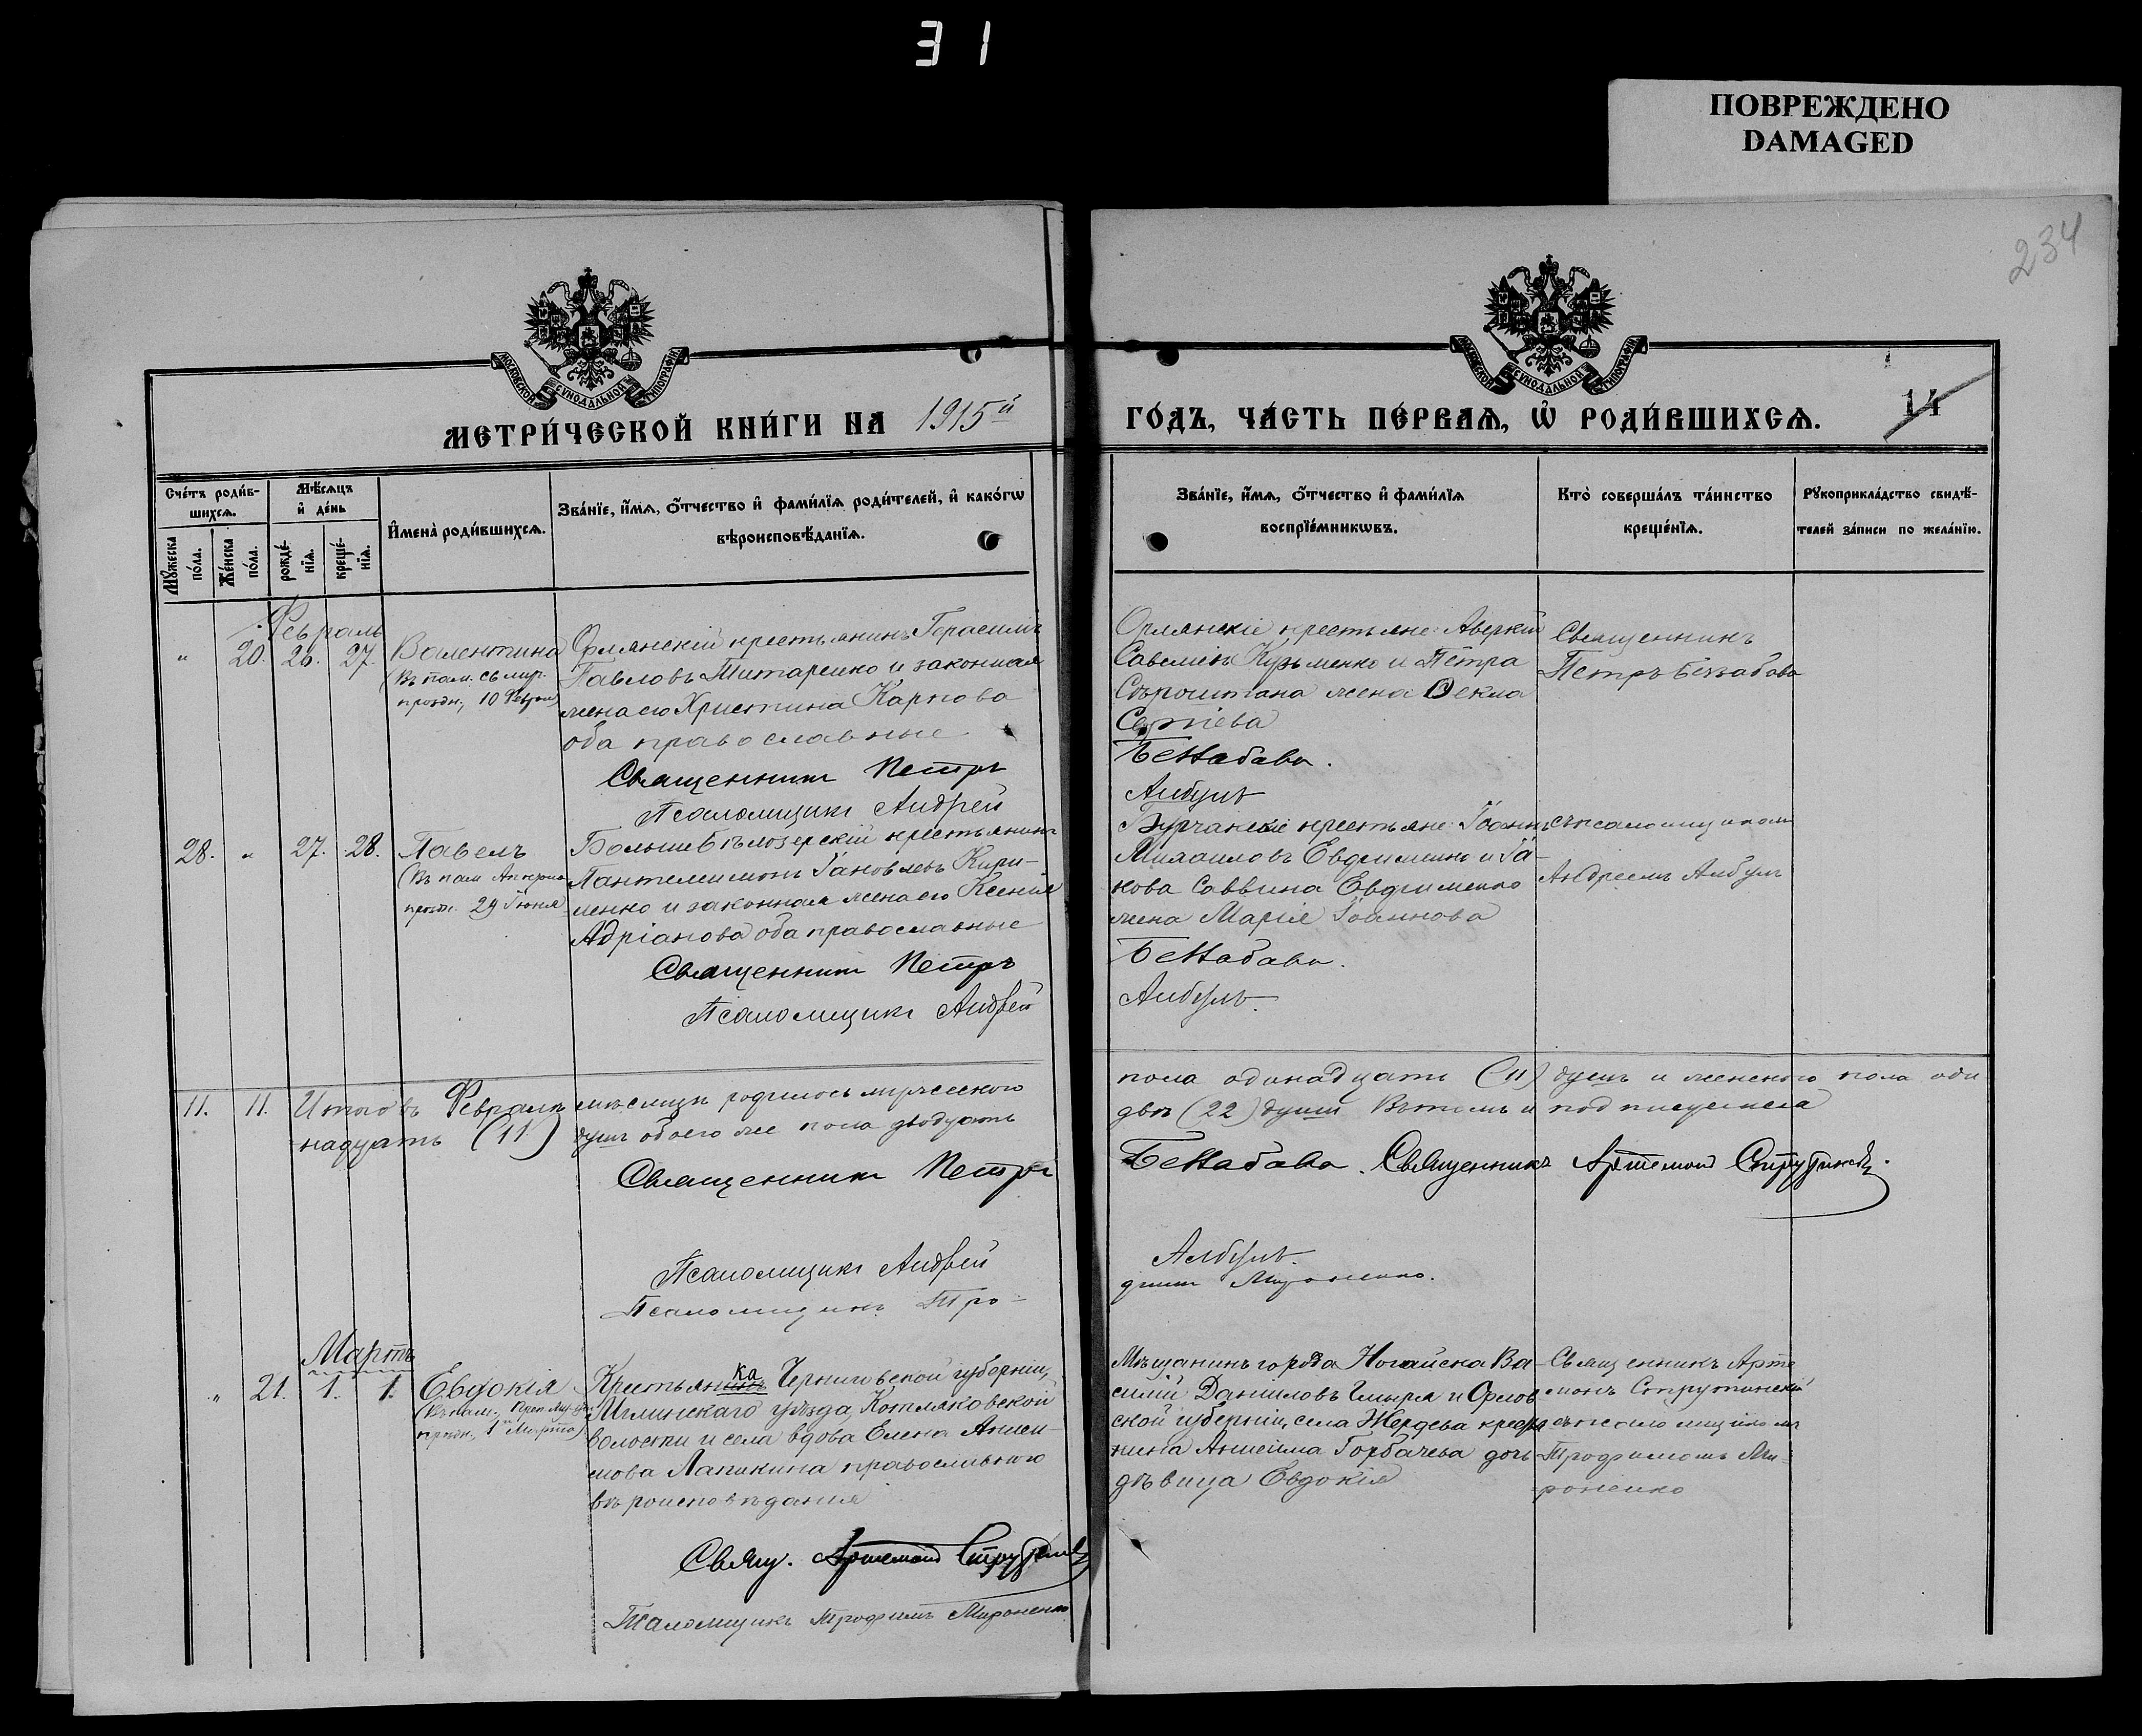 31
ПОВРЕЖДЕНО
DAMAGED
234
МОСКОВСКОЙ СѴНОДАЛЬНОЙ ТИПОГРАФІИ
МОСКОВСКОЙ СѴНОДАЛЬНОЙ ТИПОГРАФІИ
МЕТРИ́ЧЕСКОЙ КНИ́ГИ НА 1915й
ГО́ДЪ, ЧА́СТЬ ПЕ́РВАѦ, Ѡ҆ РОДИ́ВШИХСѦ.
14
Сче́тъ роди́в-
шихсѧ.
Мѣ́сѧцъ
и҆ де́нь
Мꙋ́жеска
по́ла.
Же́нска
по́ла.
рожде́-
нїѧ.
креще́-
нїѧ.
И҆мена̀ роди́вшихсѧ.
Зва́нїе, и҆́мѧ, ѻ҆́тчество и҆ фами́лїѧ роди́телей, и҆ како́гѡ
вѣроисповѣ́данїѧ.
Зва́нїе, и҆́мѧ, ѻ҆́тчество и҆ фами́лїѧ
воспрїе́мникѡвъ.
Кто̀ соверша́лъ та́инство
креще́нїѧ.
Рꙋкоприкла́дство свидѣ́-
телей за́писи по жела́нїю.
Февраль
" 20. 26. 27.
Валентина
(Въ пам. св. муч.
праздн. 10 Февраля)
Орлянскій крестьянинъ Герасимъ
Павловъ Титаренко и законная
жена его Христина Карпова
оба православные
Священникъ Петръ
Псаломщикъ Андрей
Орлянскіе крестьяне: Аверкій
Савельевъ Кузьменко и Петра
жена Ѳекла
Сергіева
Беззабава.
Албулъ
Священникъ
Петръ Беззабава
28. " 27. 28.
Павелъ
(Въ пам. Апостола
праздн. 29 Іюня)
Больше Бѣлозерскій крестьянинъ
Пантелеимонъ Іаковлевъ Кири-
ленко и законная жена его Ксенія
Адріанова оба православные
Священникъ Петръ
Псаломщикъ Андрей
Бурчакскіе крестьяне: Іоаннъ
Михаиловъ Евдименко и Іа-
кова Саввина Евдименко
жена Марія Іоаннова
Беззабава.
Албулъ.
съ псаломщикомъ
Андреемъ Албулъ
11. 11. Итого въ Февралѣ мѣсяцѣ родилось мужескаго
пола одинадцать (11) душъ и женскаго пола оди
надцать (11) душъ обоего же пола двадцать
двѣ (22) души. Въ томъ и подписуемся
Священникъ Петръ
Беззабава. Священникъ Артемонъ Струтинскій.
Псаломщикъ Андрей
Албулъ.
Псаломщикъ Тро-
фимъ Мироненко.
Мартъ
" 21. 1. 1.
Евдокія
(Въ пам. Преп. Муч.
праздн. 1й Марта)
Крестьянка Черниговской губерніи,
Мглинскаго уѣзда, Котляковской
волости и села вдова Елена Аниси-
мова Лапикина православнаго
вѣроисповѣданія
Свящ. Артемонъ Струтинскій
Псаломщикъ Трофимъ Мироненко
Мѣщанинъ города Ногайска Ва-
силій Даниловъ Чмыря и Орлов
ской губерніи, села Жердева крестья
нина Анисима Горбачева дочь
дѣвица Евдокія
Священникъ Арте
монъ Струтинскій
съ псаломщикомъ
Трофимомъ Ми-
роненко